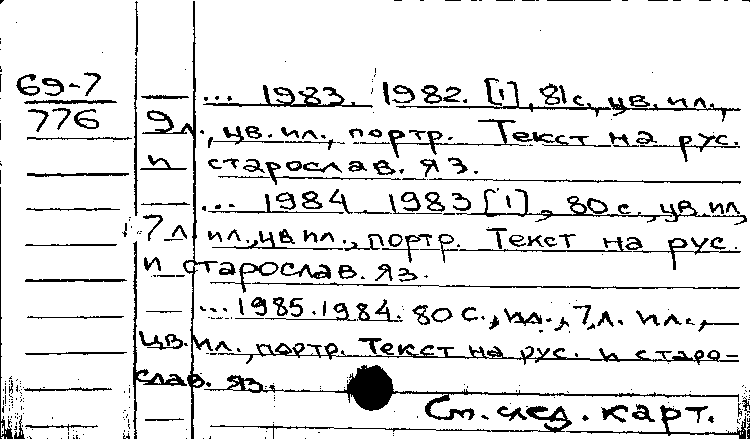 69-7
776
— ... 1983. 1982. [1], 81 с., цв. ил.,
9 л., цв. ил., портр. Текст на рус.
и старослав. яз.
— ... 1984. 1983 [1], 80 с., цв. ил,
7 л ил., цв ил., портр. Текст на рус.
и старослав. яз.
— ... 1985. 1984. 80 с., ил., 7 л. ил.,
цв. ил., портр. Текст на рус. и старо-
слав. яз.
См. след. карт.